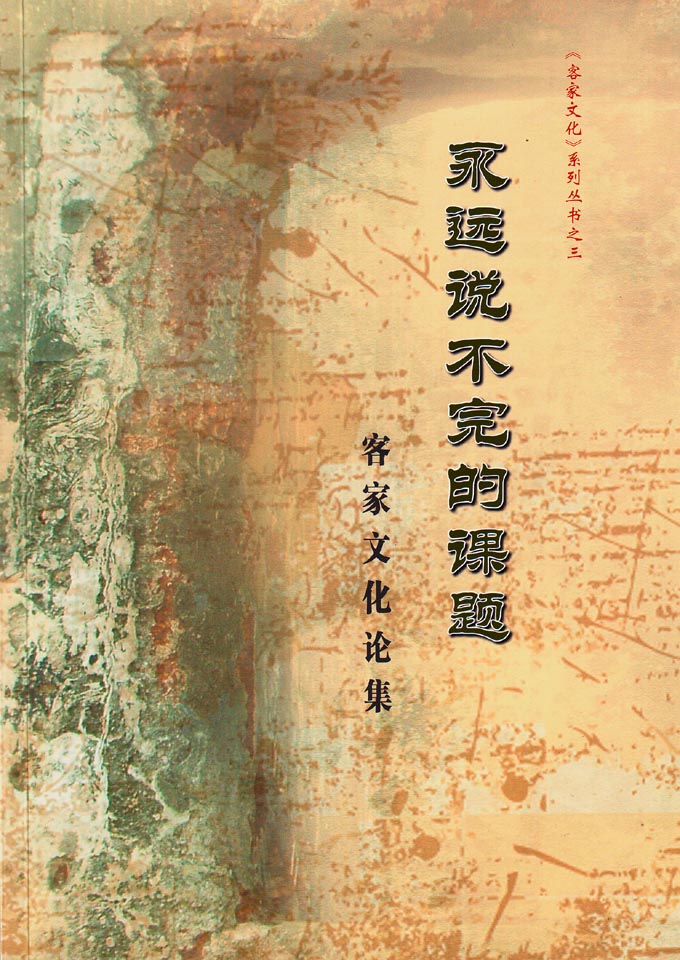 《客家文化》系列丛书之三
永远说不完的课题
客家文化论集